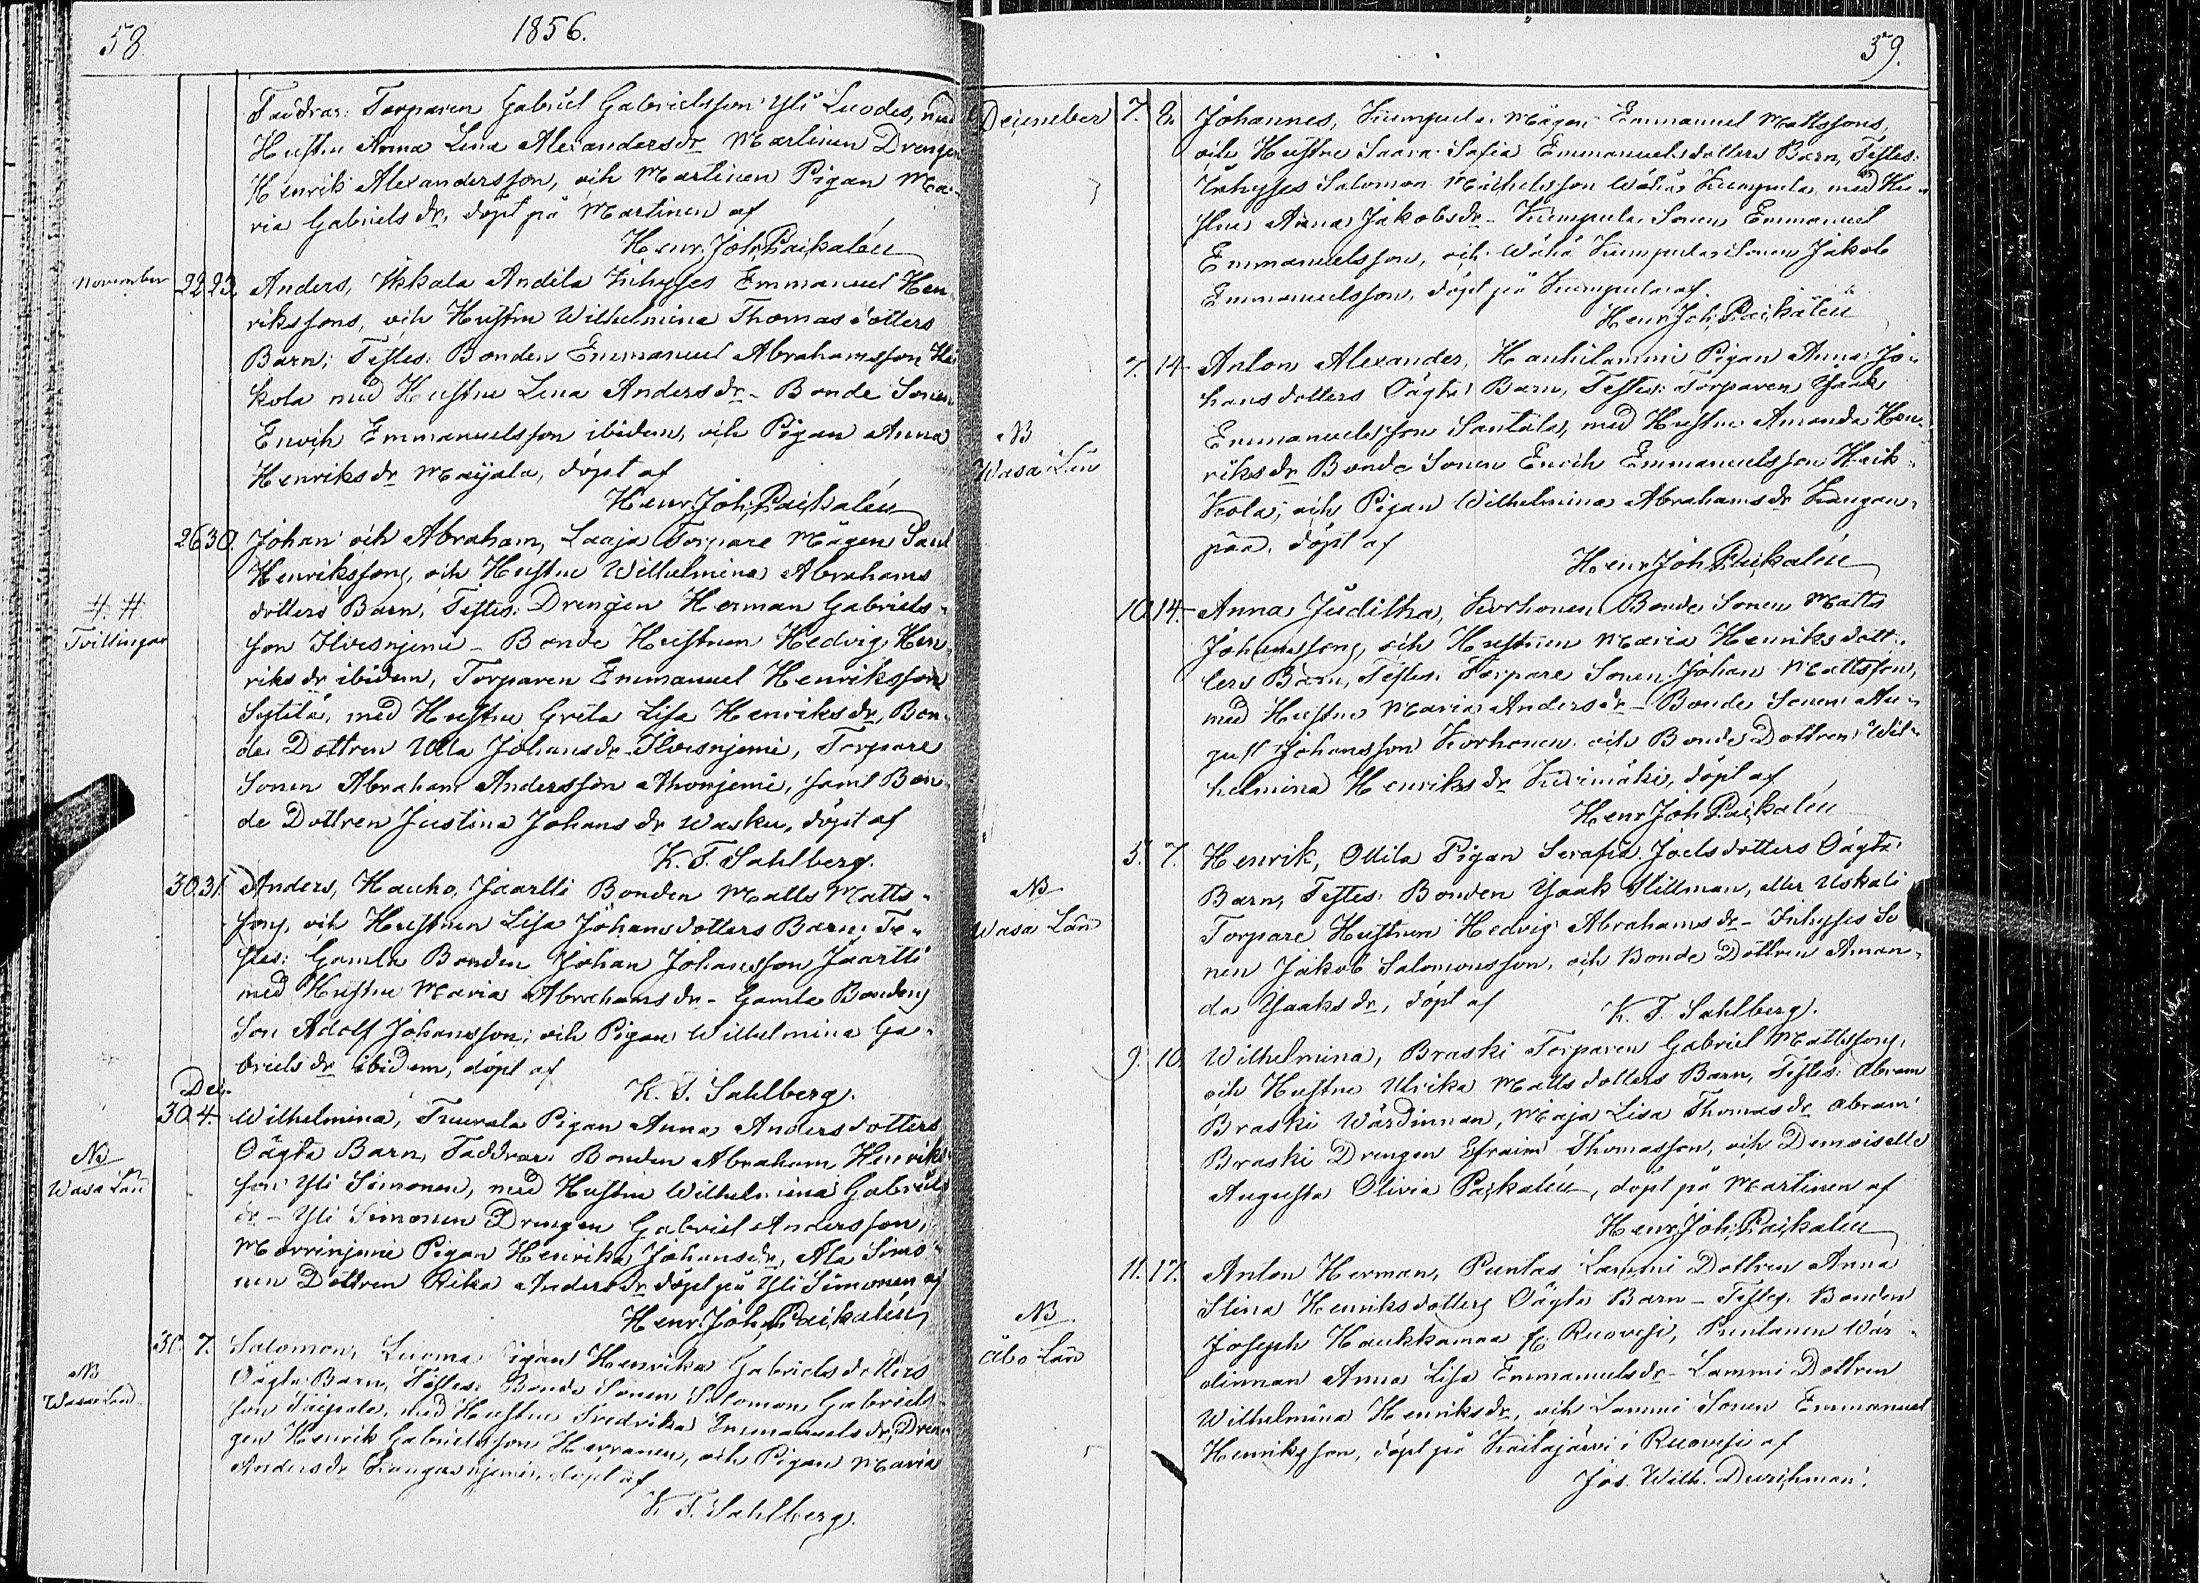 58.
1856.
Faddrar: Torparen Gabriel Gabrielsson Yli Luodes, med
Hustru Anna Lena Alexandersdr Martinen Drengen
Henrik Alexandersson, och Martinen Pigan Ma-
ria Gabriels dr, döpt på Martinen af
Henr. Joh. Paikalén
November 22 23. Anders, Ikkala Andila Inhyses Emmanuel Hen
rikssons, och Hustru Wilhelmina Thomas dotters
Barn; Testes: Bonden Emmanuel Abrahamsson
kola med Hustru Lena Anders dr - Bonde Sonen
Enoch Emmanuelsson ibidem, och Pigan Anna
Henriks dr Mayala, döpt af
Henr. Joh. Paikalén
26 30. Johan och Abraham, Laaja Torpare Mågen
Henrikssons, och Hustru Wilhelmina Abrahams
#. #
Tvillingar
dotters Barn, Testes: Drengen Herman Gabriels-
son Ilvesnjemi - Bonde Hustrun Hedvig Hen
riks dr ibidem, Torparen Emmanuel Henriksson
Sytelä, med Hustru Greta Lisa Henriks dr, Bon-
de Dottren Ulla Johans dr Ilvesnjemi, Torpare
Sonen Abraham Andersson Ahonjemi, samt Bon-
de Dottren Justina Johans dr Wasku, döpt af
K. F. Sahlberg.
30. 31. Anders, Hauho, Jaartti Bonden Matts Matts-
sons, och Hustrun Lisa Johansdotters Barn; Te-
stes: Gamla Bonden Johan Johansson Jaartti
med Hustru Maria Abrahams dr - Gamla Bondens
Son Adolf Johansson; och Pigan Wilhelmina Ga-
briels dr ibidem, döpt af
K. F. Sahlberg.
Dec.
30. 4. Wilhelmina, Tuurala Pigan Anna Andersdotters
NB
Wasa Län
Oägta Barn, Faddrar: Bonden Abraham Henriks
son Yli Simonen, med Hustru Wilhelmina Gabriels
dr - Yli Simonen Drengen Gabriel Andersson,
Morrinjemi Pigan Henrika Johansdr, Ala Simo-
nen Dottren Rika Anders dr döpt på Yli Simonen af
Henr. Joh. Paikalén
30. 7. Salomon, Luoma Pigan Henrika Gabrielsdotters
NB
Wasa Län
Oägta Barn, Testes: Bonde Sonen Salomon Gabriels-
son Taipale, med Hustru Fredrika Emmanuels dr, Dren-
gen Henrik Gabrielsson Herranen, och Pigan Maria
Anders dr Kangasnjemi, döpt af
K. F. Sahlberg.
59.
December 7. 8. Johannes, Kumpula Mågen Emmanuel Mattssons,
och Hustru Saara Sofia Emmanuelsdotters Barn, Testes:
Inhyses Salomon Michelsson Wähä Kumpula, med Hu-
stru Anna Jakobsdr - Kumpula Sonen Emmanuel
Emmanuelsson, och Wähä Kumpula Sonen Jakob
Emmanuelsson, döpt på Kumpula af
Henr. Joh. Paikalén
7. 14. Anton Alexander, Hauhilammi Pigan Anna Jo-
hans dotters Oägta Barn, Testes: Torparen Isaak
NB
Wasa Län
Emmanuelsson Santala, med Hustru Amanda Hen-
riks dr Bonde Sonen Enoch Emmanuelsson Heik-
kola; och Pigan Wilhelmina Abrahamsdr Kangan-
pää, döpt af
Henr. Joh. Paikalén
10. 14. Anna Juditha, Korhonen Bonde Sonen Matts
Johanssons, och Hustrun Maria Henriksdott-
ters Barn, Testes: Torpare Sonen Johan Mattsson,
med Hustru Maria Anders dr - Bonde Sonen Au-
gust Johansson Korhonen och Bonde Dottren Wil-
helmina Henriks dr Kivimäki, döpt af
Henr. Joh. Paikalén
5. 7. Henrik, Ollila Pigan Serafia Joelsdotters Oägta
NB
Wasa Län
Barn, Testes: Bonden Isaak Hillman, eller Uskali
Torpare Hustrun Hedvig Abrahams dr - Inhyses So
nen Jakob Salomonsson, och Bonde Dottren Aman-
da Isaaks dr, döpt af
K. F. Sahlberg.
9. 10. Wilhelmina, Braski Torparen Gabriel Mattssons,
och Hustru Ulrika Mattsdotters Barn, Testes: Abram
Braski Wärdinnan, Maja Lisa Thomas dr Abram
Braski Drengen Efraim Thomasson, och Demoiselle
Augusta Olivia Paikalén, döpt på Martinen af
Henr. Joh. Paikalén
11. 17. Anton Herman, Puntas Lammi Dottren Anna
Stina Henriksdotters Oägta Barn - Testes: Bonden
NB
Åbo Län
Joseph Haukkamaa fr Ruovesi, Puntanen Wär-
dinnan Anna Lisa Emmanuelsdr - Lammi Dottren
Wilhelmina Henriks dr, och Lammi Sonen Emmanuel
Henriksson, döpt på Kaitajärvi i Ruovesi af
Jos. Wilh. Durchman.